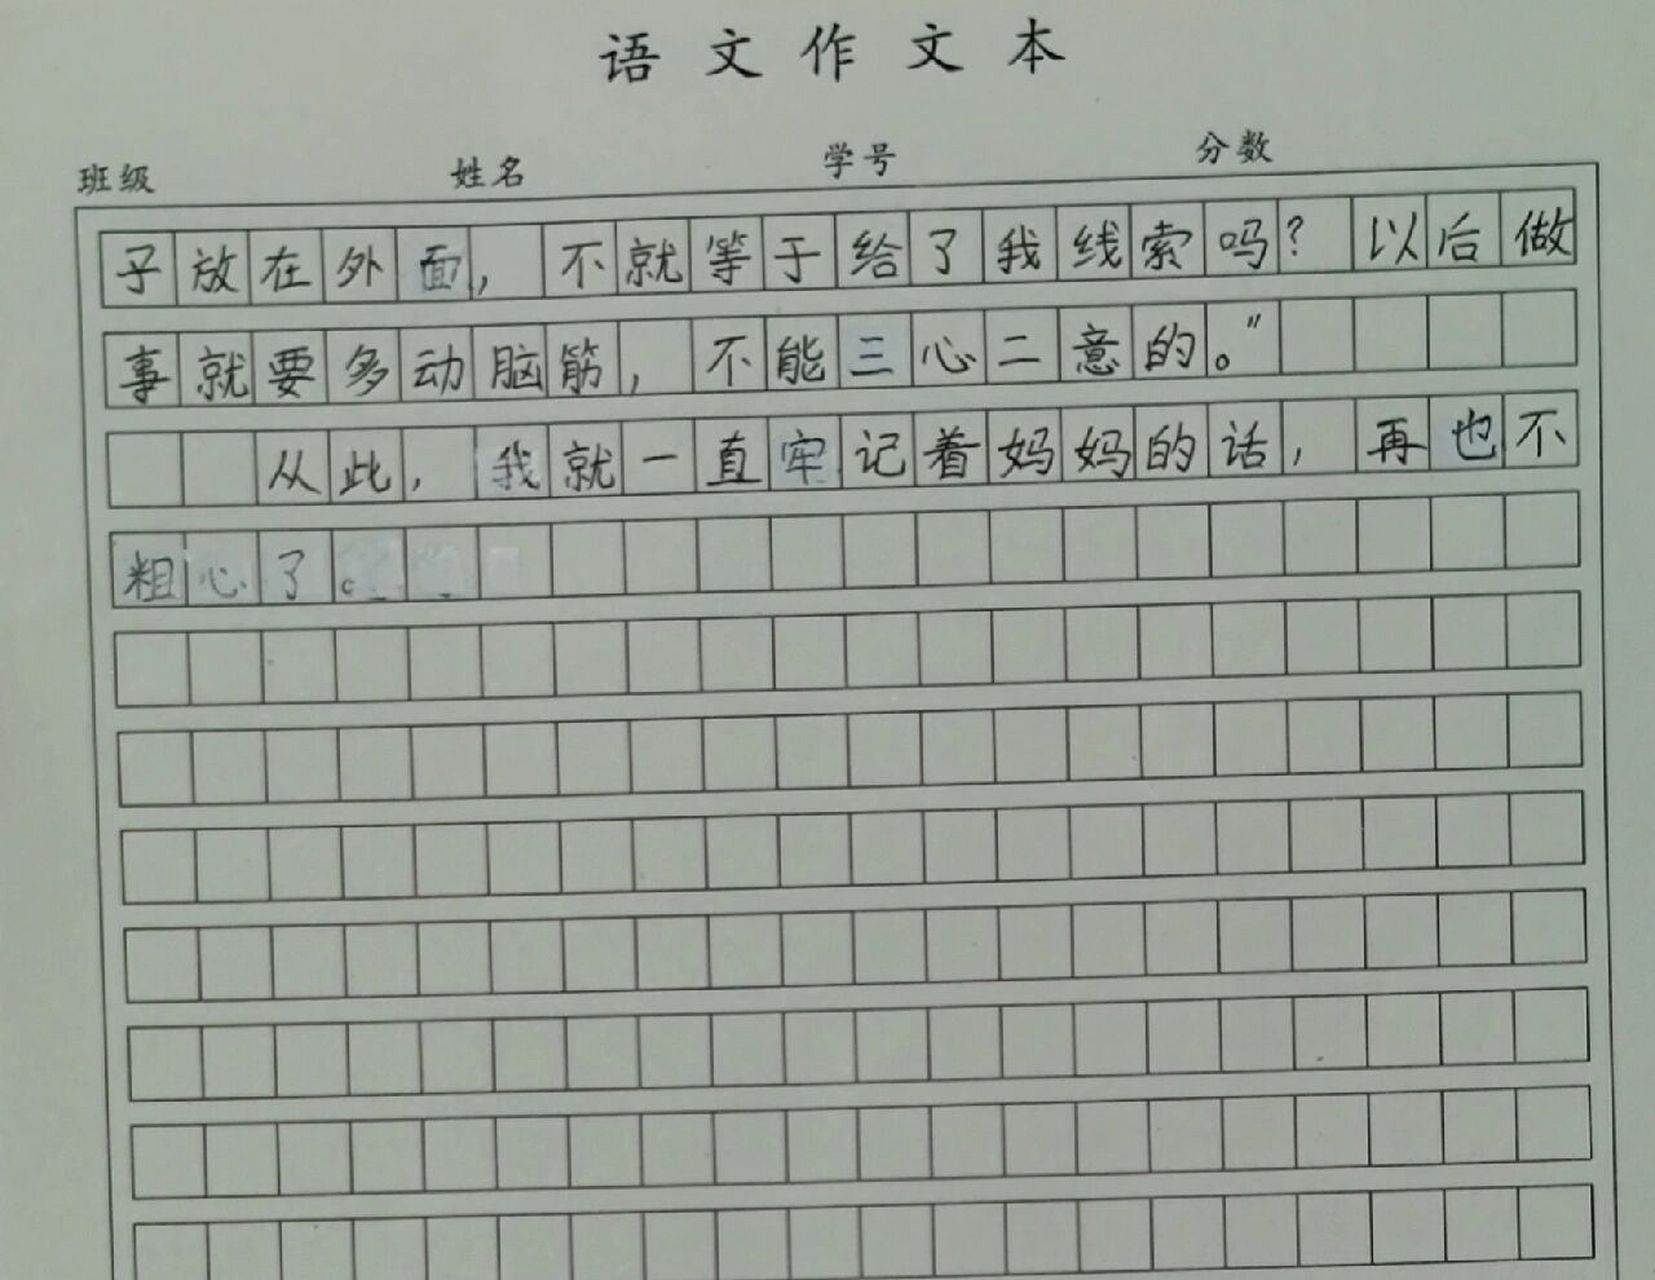 语文作文本
班级 姓名 学号 分数
子放在外面，不就等于给了我线索吗？以后做
事就要多动脑筋，不能三心二意的。”
从此，我就一直牢记着妈妈的话，再也不
粗心了。